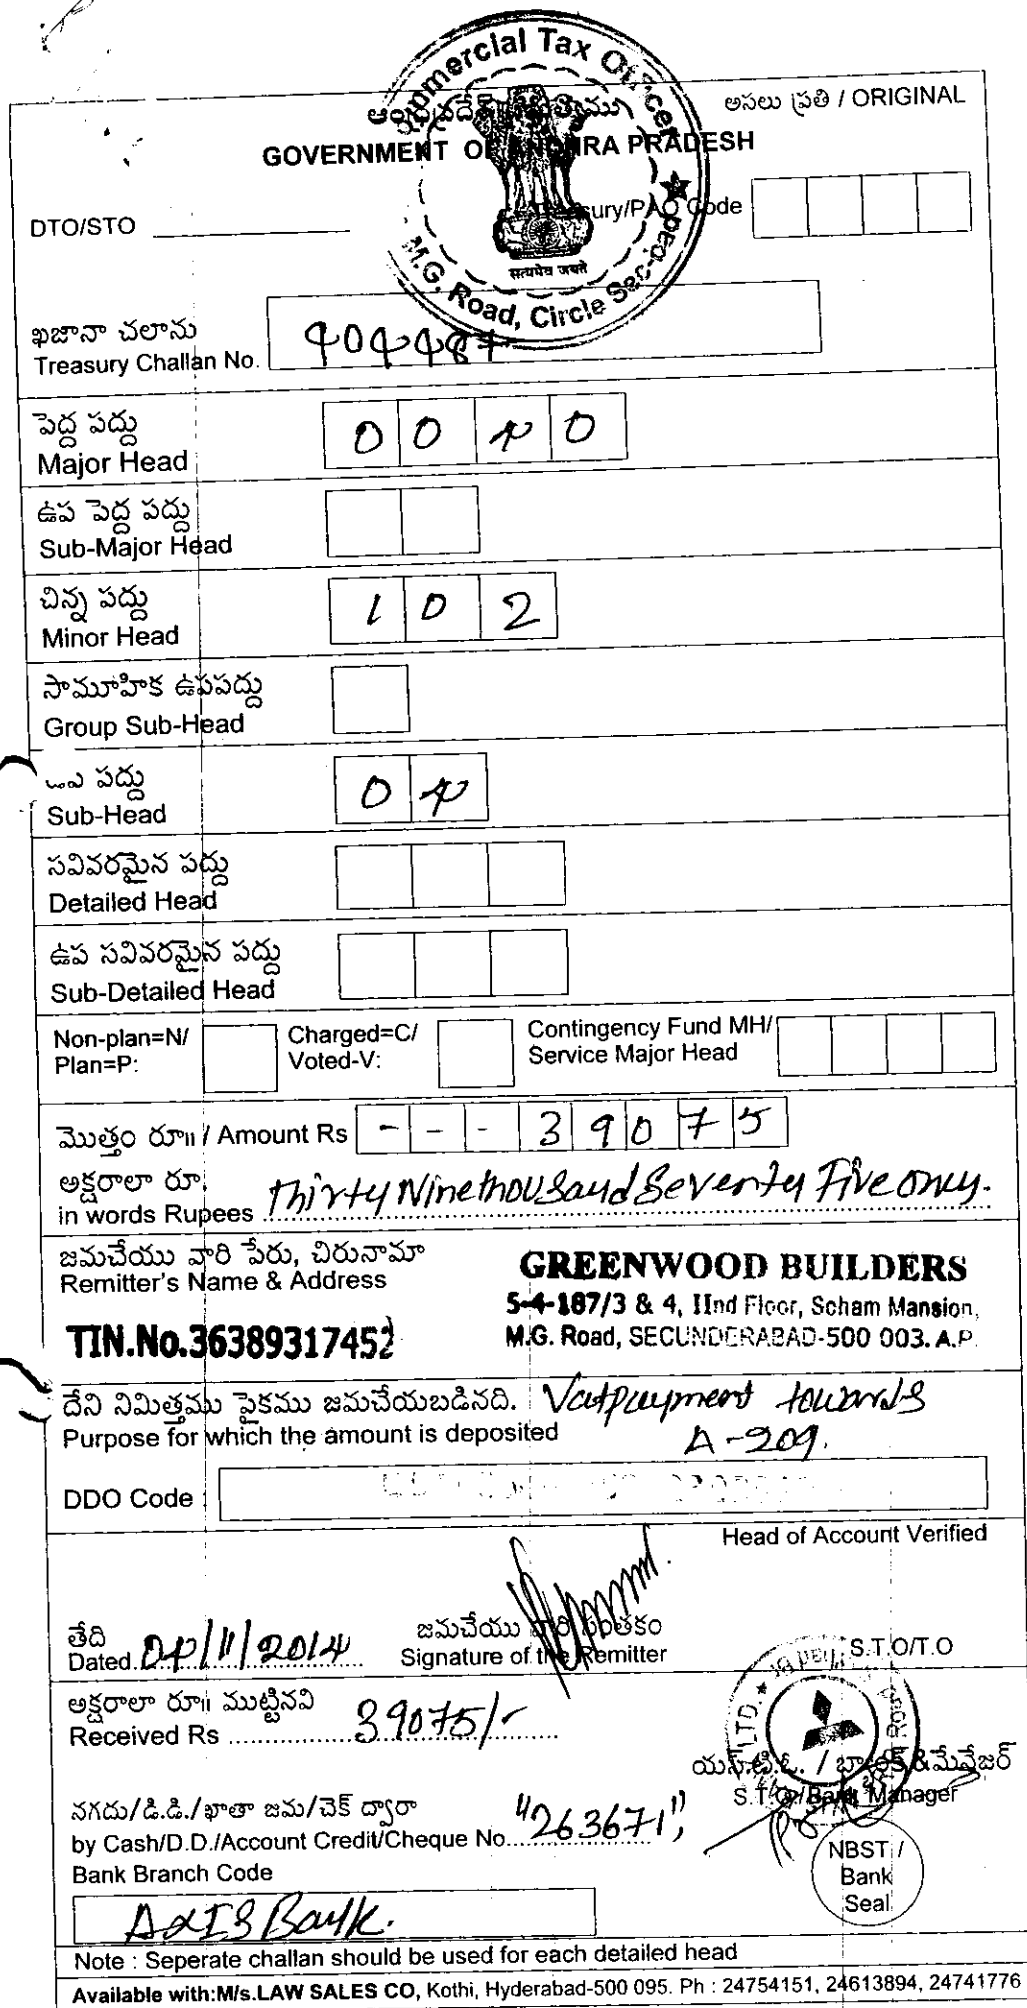 Commercial Tax Officer
అసలు ప్రతి / ORIGINAL
ఆంధ్రప్రదేశ్ ప్రభుత్వము
GOVERNMENT OF ANDHRA PRADESH
DTO/STO
Treasury/PAO Code
सत्यमेव जयते
M.G. Road, Circle Sec-bad
ఖజానా చలాను
Treasury Challan No. 404487
పెద్ద పద్దు
Major Head 0 0 4 0
ఉప పెద్ద పద్దు
Sub-Major Head
చిన్న పద్దు
Minor Head 1 0 2
సామూహిక ఉపపద్దు
Group Sub-Head
ఉప పద్దు
Sub-Head 0 4
సవివరమైన పద్దు
Detailed Head
ఉప సవివరమైన పద్దు
Sub-Detailed Head
Non-plan=N/ Charged=C/ Contingency Fund MH/
Plan=P: Voted-V: Service Major Head
మొత్తం రూ॥ / Amount Rs - - - 3 9 0 7 5
అక్షరాలా రూ.
in words Rupees Thirty Nine thousand Seventy Five only.
జమచేయు వారి పేరు, చిరునామా
Remitter's Name & Address
GREENWOOD BUILDERS
5-4-187/3 & 4, IInd Floor, Soham Mansion,
M.G. Road, SECUNDERABAD-500 003. A.P.
TIN.No.36389317452
దేని నిమిత్తము పైకము జమచేయబడినది. Vat payment towards
Purpose for which the amount is deposited A-209.
DDO Code
Head of Account Verified
తేది
Dated 04/11/2014
జమచేయు వారి సంతకం
Signature of the Remitter
S.T.O/T.O
అక్షరాలా రూ॥ ముట్టినవి
Received Rs 39075/-
యస్.టి.ఓ. / బ్యాంక్ మేనేజర్
S.T.O/Bank Manager
నగదు/డి.డి./ఖాతా జమ/చెక్ ద్వారా
by Cash/D.D./Account Credit/Cheque No. "263671",
Bank Branch Code
NBST /
Bank
Seal
AXIS Bank.
Note : Seperate challan should be used for each detailed head
Available with:M/s.LAW SALES CO, Kothi, Hyderabad-500 095. Ph : 24754151, 24613894, 24741776